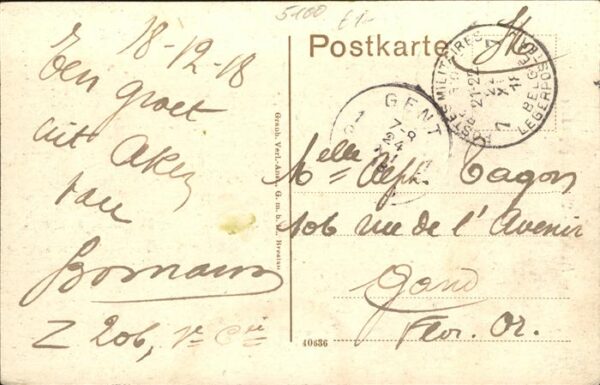 18-12-18
Een groet
uit Aken
van
Bomans
Z 206, 1e Cie
5100
Postkarte
S.M.
POSTES MILITAIRES
BELGIE
LEGERPOST
21-22
22
XII
7
GENT
1
7-8
24
XII
Graph. Verl.-Anst. G. m. b. H., Breslau
Melle Alph. Cagon
106 rue de l'Avenir
Gand
Flor. Or.
10636